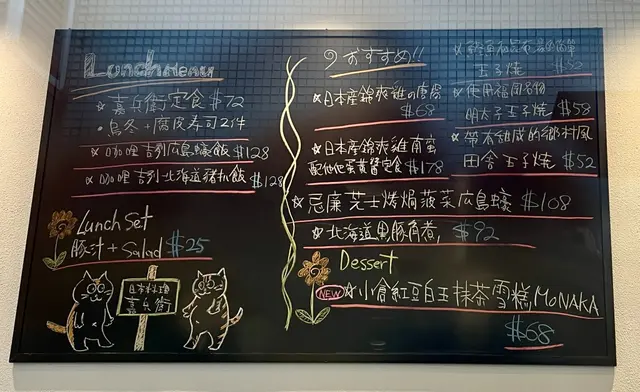 Lunch Menu
☆ 嘉兵衛定食 $72
• 烏冬+腐皮寿司2件
☆ 咖哩吉列広島蠔飯 $128
☆ 咖哩吉列北海道猪扒飯 $128
Lunch Set
豚汁 + Salad $25
日本料理
嘉兵衛
おすすめ!!
☆日本産錦爽雞の唐揚
$68
☆日本産錦爽雞南蛮
配他他蛋黄醤定食 $178
☆忌廉芝士烤焗菠菜広島蠔 $108
☆北海道黒豚角煮 $92
玉子焼 $52
☆使用福岡名物
明太子玉子焼 $58
☆帯有甜感的郷村風
田舎玉子焼 $52
Dessert
NEW ☆小倉紅豆白玉抹茶雪糕MONAKA
$68